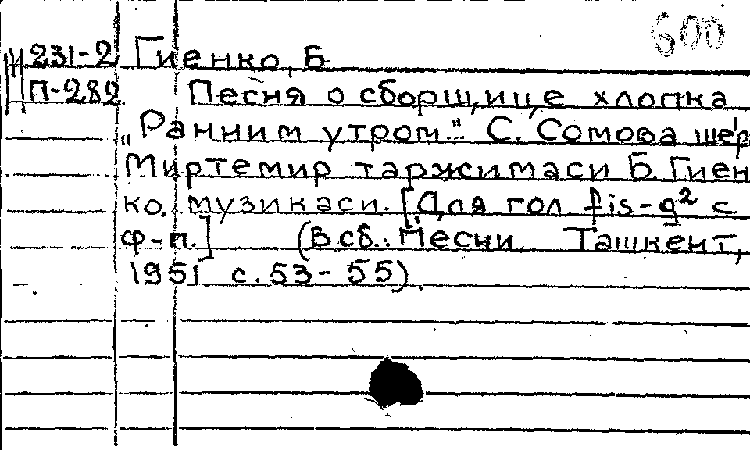 600
231-2 Гиенко, Б
П-282 Песня о сборщице хлопка
„Ранним утром." С. Сомова шер
Миртемир таржимаси Б. Гиен
ко. музикаси. [Для гол fis-g² с
ф-п.] (В сб.: Песни Ташкент,
1951 с. 53-55).